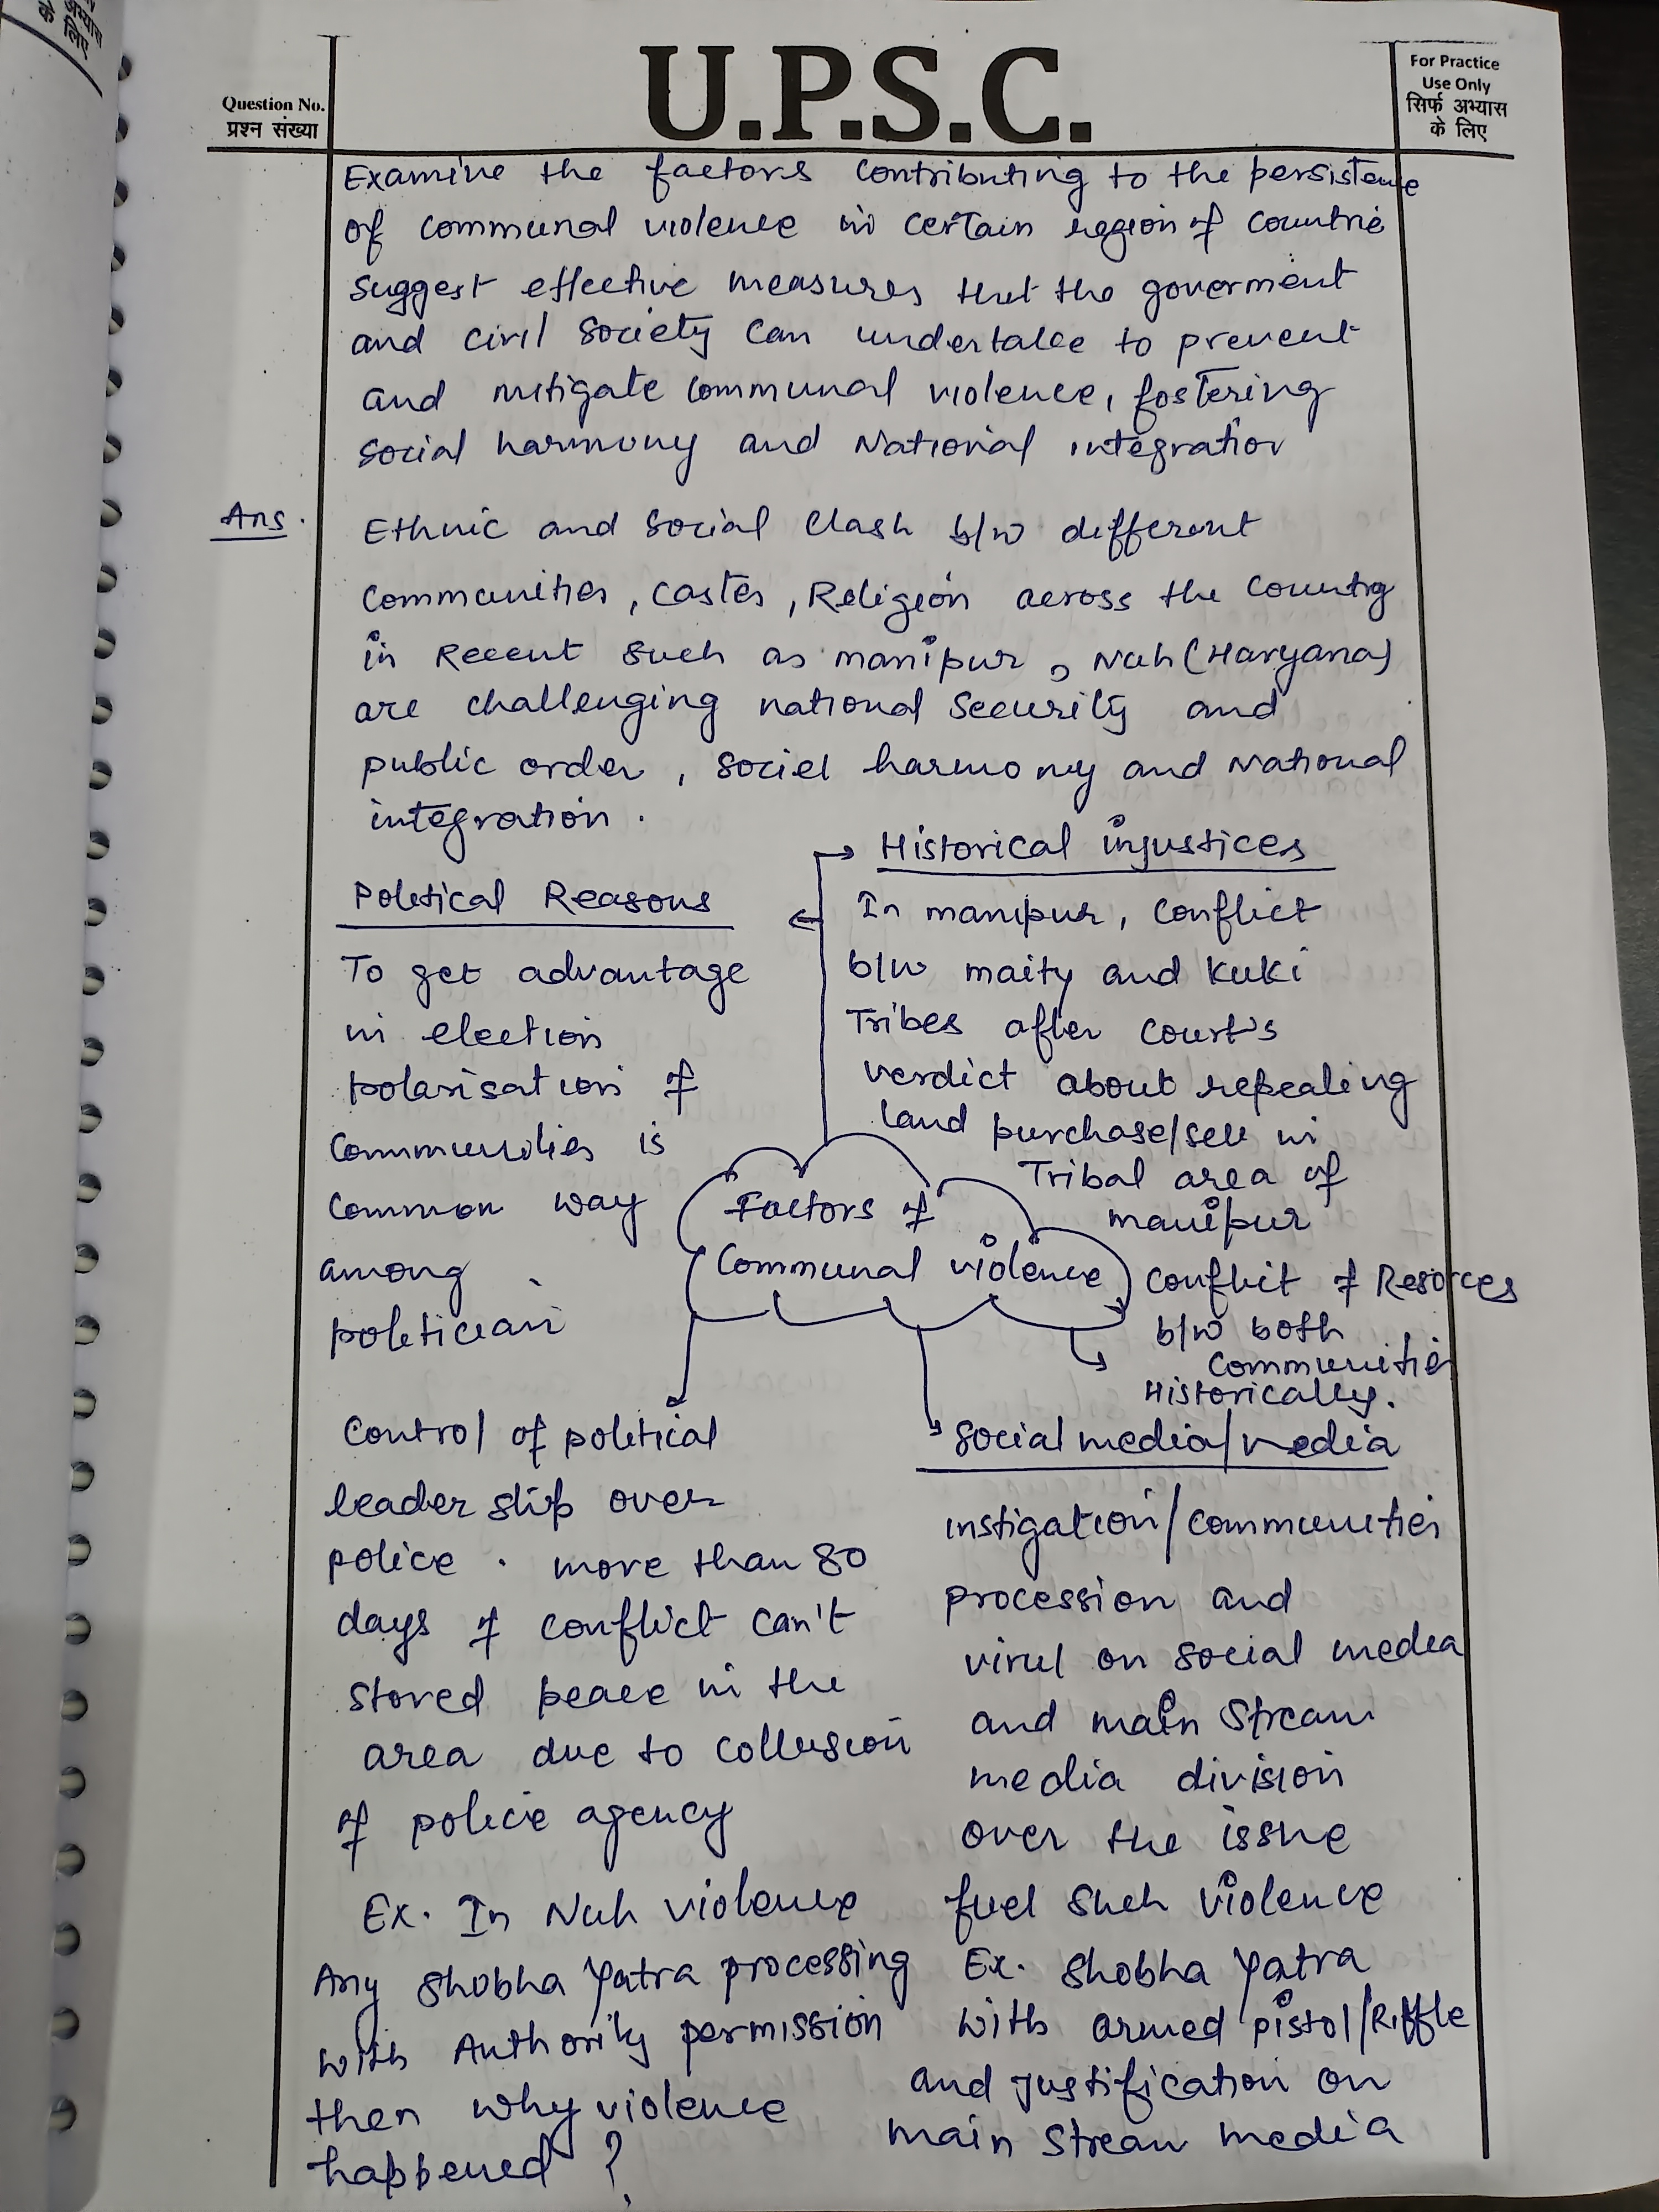 अभ्यास
के लिए
U.P.S.C.
Question No.
प्रश्न संख्या
For Practice
Use Only
सिर्फ अभ्यास
के लिए
Examine the factors contributing to the persistence
of communal violence in certain region of countrie
suggest effective measures that the goverment
and civil society can undertake to prevent
and mitigate communal violence, fostering
social harmony and National integration
Ans.
Ethnic and social clash b/w different
communities, castes, Religion across the country
in Recent such as manipur, Nuh (Haryana)
are challenging national security and
public order, social harmony and National
integration.
Political Reasons
To get advantage
in election
polarisation of
communities is
common way
among
politician
Historical injustices
In manipur, conflict
b/w maity and kuki
Tribes after court's
verdict about repealing
land purchase/sell in
Tribal area of
manipur
Factors of
Communal violence
conflict of Resorces
b/w both
communities
Historically.
Control of political
leader ship over
police. more than 80
days of conflict can't
stored peace in the
area due to collusion
of police agency
Ex. In Nuh violence
Any shobha Yatra processing
with Authority permission
then why violence
happened ?
social media/media
instigation/communities
procession and
virul on social media
and main stream
media division
over the issue
fuel such violence
Ex. shobha Yatra
with armed pistol/Riffle
and justification on
main stream media